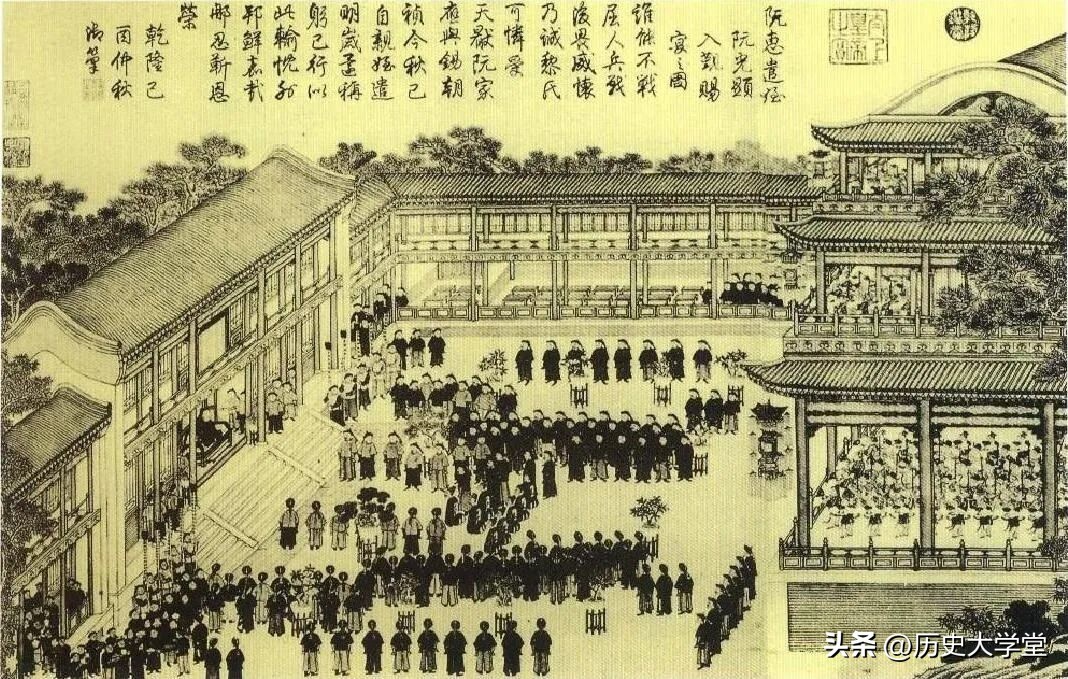 阮惠遣侄
阮光顯
入覲賜
宴之圖
誰能不戰
屈人兵戰
後畏威懷
乃誠黎氏
可憐受
天厭阮家
應與錫朝
禎今秋已
自親姪遣
明歲還稱
躬己行似
此輸忱外
邦鮮嘉哉
那忍靳恩
榮
乾隆己
酉仲秋
御筆
头条 @历史大学堂